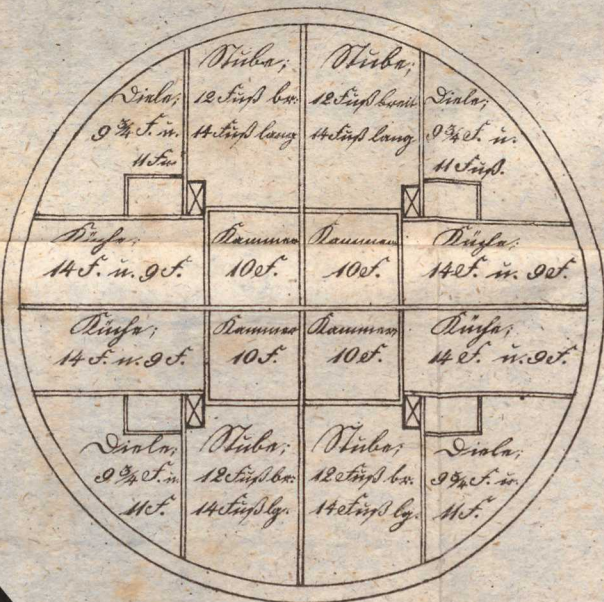 Diele;
9 3/4 F. u.
11 Fu
Stube;
12 Fuß br:
14 Fuß lang
Stube;
12 Fuß breit
14 Fuß lang
Diele;
9 3/4 F. u.
11 Fuß.
Küche;
14 F. u. 9 F.
Kammer
10 F.
Kammer
10 F.
Küche;
14 F. u. 9 F.
Küche;
14 F. u. 9 F.
Kammer
10 F.
Kammer
10 F.
Küche;
14 F. u. 9 F.
Diele;
9 3/4 F. u.
11 F.
Stube;
12 Fuß br:
14 Fuß lg.
Stube;
12 Fuß br.
14 Fuß lg.
Diele;
9 3/4 F. u.
11 F.